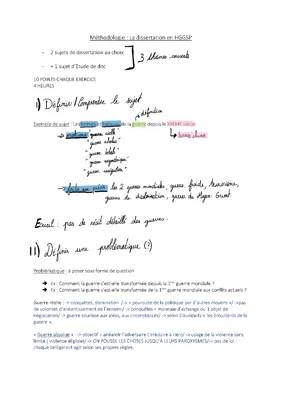 Méthodologie : La dissertation en HGGSP
- 2 sujets de dissertation au choix
- + 1 sujet d'Etude de doc
3 thèmes concernés
10 POINTS CHAQUE EXERCICE
4 HEURES
I) Définir / Comprendre le sujet
définition
Exemple de sujet : Les formes de la guerre depuis le
notions "guerre civile"
"guerre totale"
"guerre asymétrique"
"guerre irrégulière"
les 2 guerres mondiales, guerre froide, terrorisme,
guerres de décolonisation, guerres du Moyen Orient
Ecueil : pas de récit détaillé des guerres.
II) Définir une problématique (?)
Problématique : à poser sous forme de question
➔ Ex : Comment la guerre s'est-elle transformée depuis la 1ère guerre mondiale ?
➔ Ex : Comment la guerre s'est-elle transformée de la 1ère guerre mondiale aux conflits actuels ?
Guerre réelle : -> conquêtes, domination /-> « poursuite de la politique par d'autres moyens »/ ->pas
de volonté d'anéantissement de l'ennemi/ -> conquêtes = monnaie d'échange ou d'objet de
négociation/ -> guerre soumise aux aléas, aux circonstances/ -> selon Clausewitz « les brouillards de la
guerre ».
« Guerre absolue » : -> objectif = anéantir l'adversaire L'réduire à rien/ -> usage de la violence sans
limite ( violence illégale)/ -> ON POUSSE LES CHOSES JUSQU'À LEURS PAROXYSMES/-> pas de loi
chaque belligérant agit selon ses propres règles.